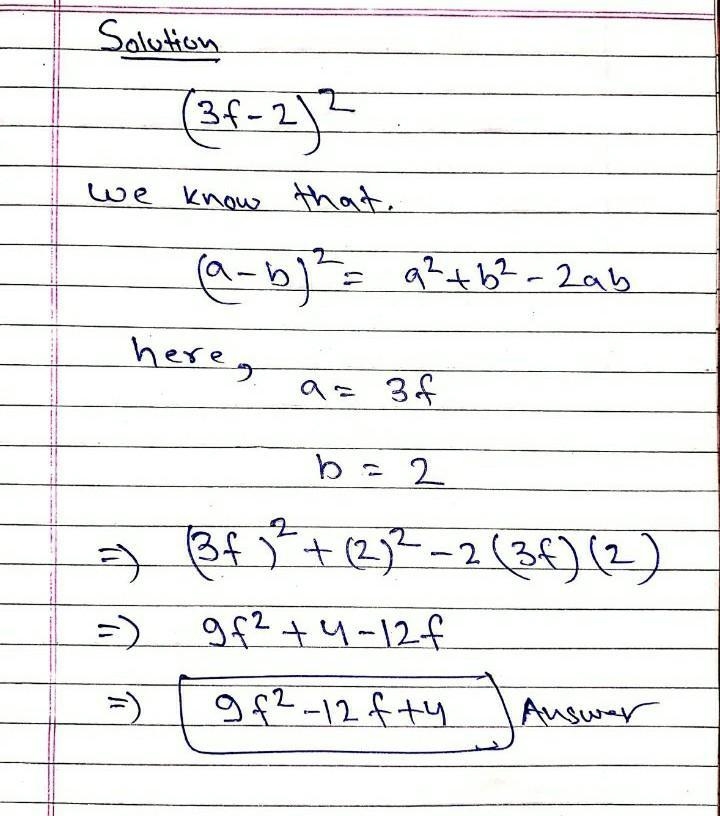 Solution
(3f-2)²
we know that.
(a-b)² = a²+b²-2ab
here,
a = 3f
b = 2
=) (3f)²+(2)²-2(3f)(2)
=) 9f²+4-12f
=) 9f²-12f+4 Answer